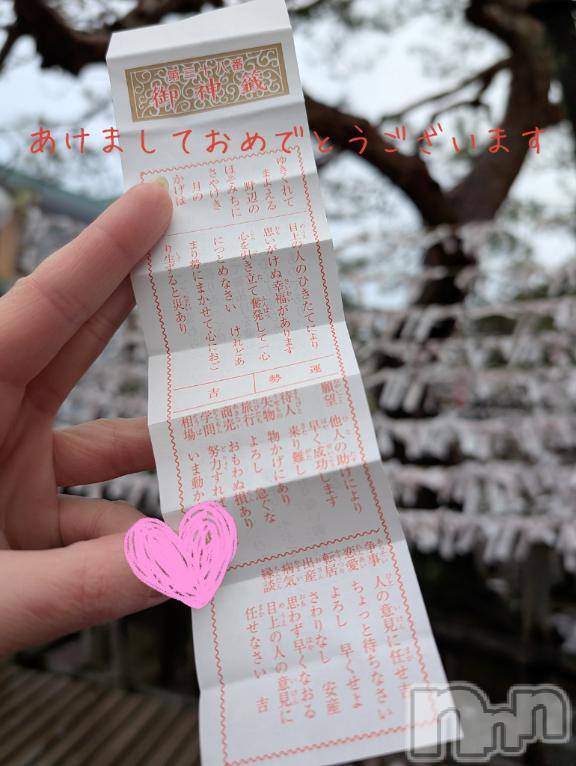 第三十八番
御神籤
あけましておめでとうございます
ゆきくれて
まよえる
野辺の
ほそみちに
さやけき
月の
かげは
目上の人のひきたてにより
思いがけぬ幸福があります
心を引き立て奮発して一心
につとめなさい けれどあ
まり勢にまかせて心におご
り生ずると災あり
運勢 吉
願望 他人の助けにより
早く成功します
待人 来り難し
失物 物かげにあり
旅行 よろし 急ぐな
商売 おもわぬ損あり
学問 努力すれ
相場 いま動か
争事 人の意見に任せ吉
恋愛 ちょっと待ちなさい
転居 よろし 早くせよ
出産 さわりなし 安産
病気 思わず早くなおる
縁談 目上の人の意見に
任せなさい 吉
nnn